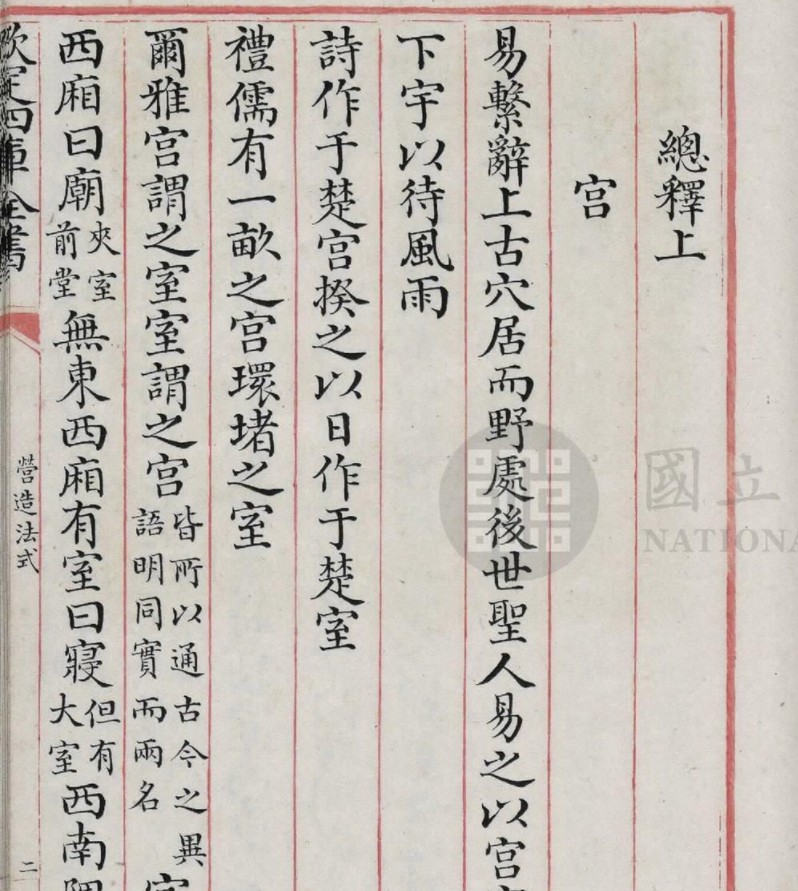 總釋上
宫
易繫辭上古穴居而野處後世聖人易之以宫
下宇以待風雨
詩作于楚宫揆之以日作于楚室
禮儒有一畝之宫環堵之室
爾雅宫謂之室室謂之宫皆所以通古今之異語明同實而兩名
西廂曰廟夾室前堂無東西廂有室曰寢但有大室西南隅
欽定四庫全書
營造法式
二
國立
NATIONA